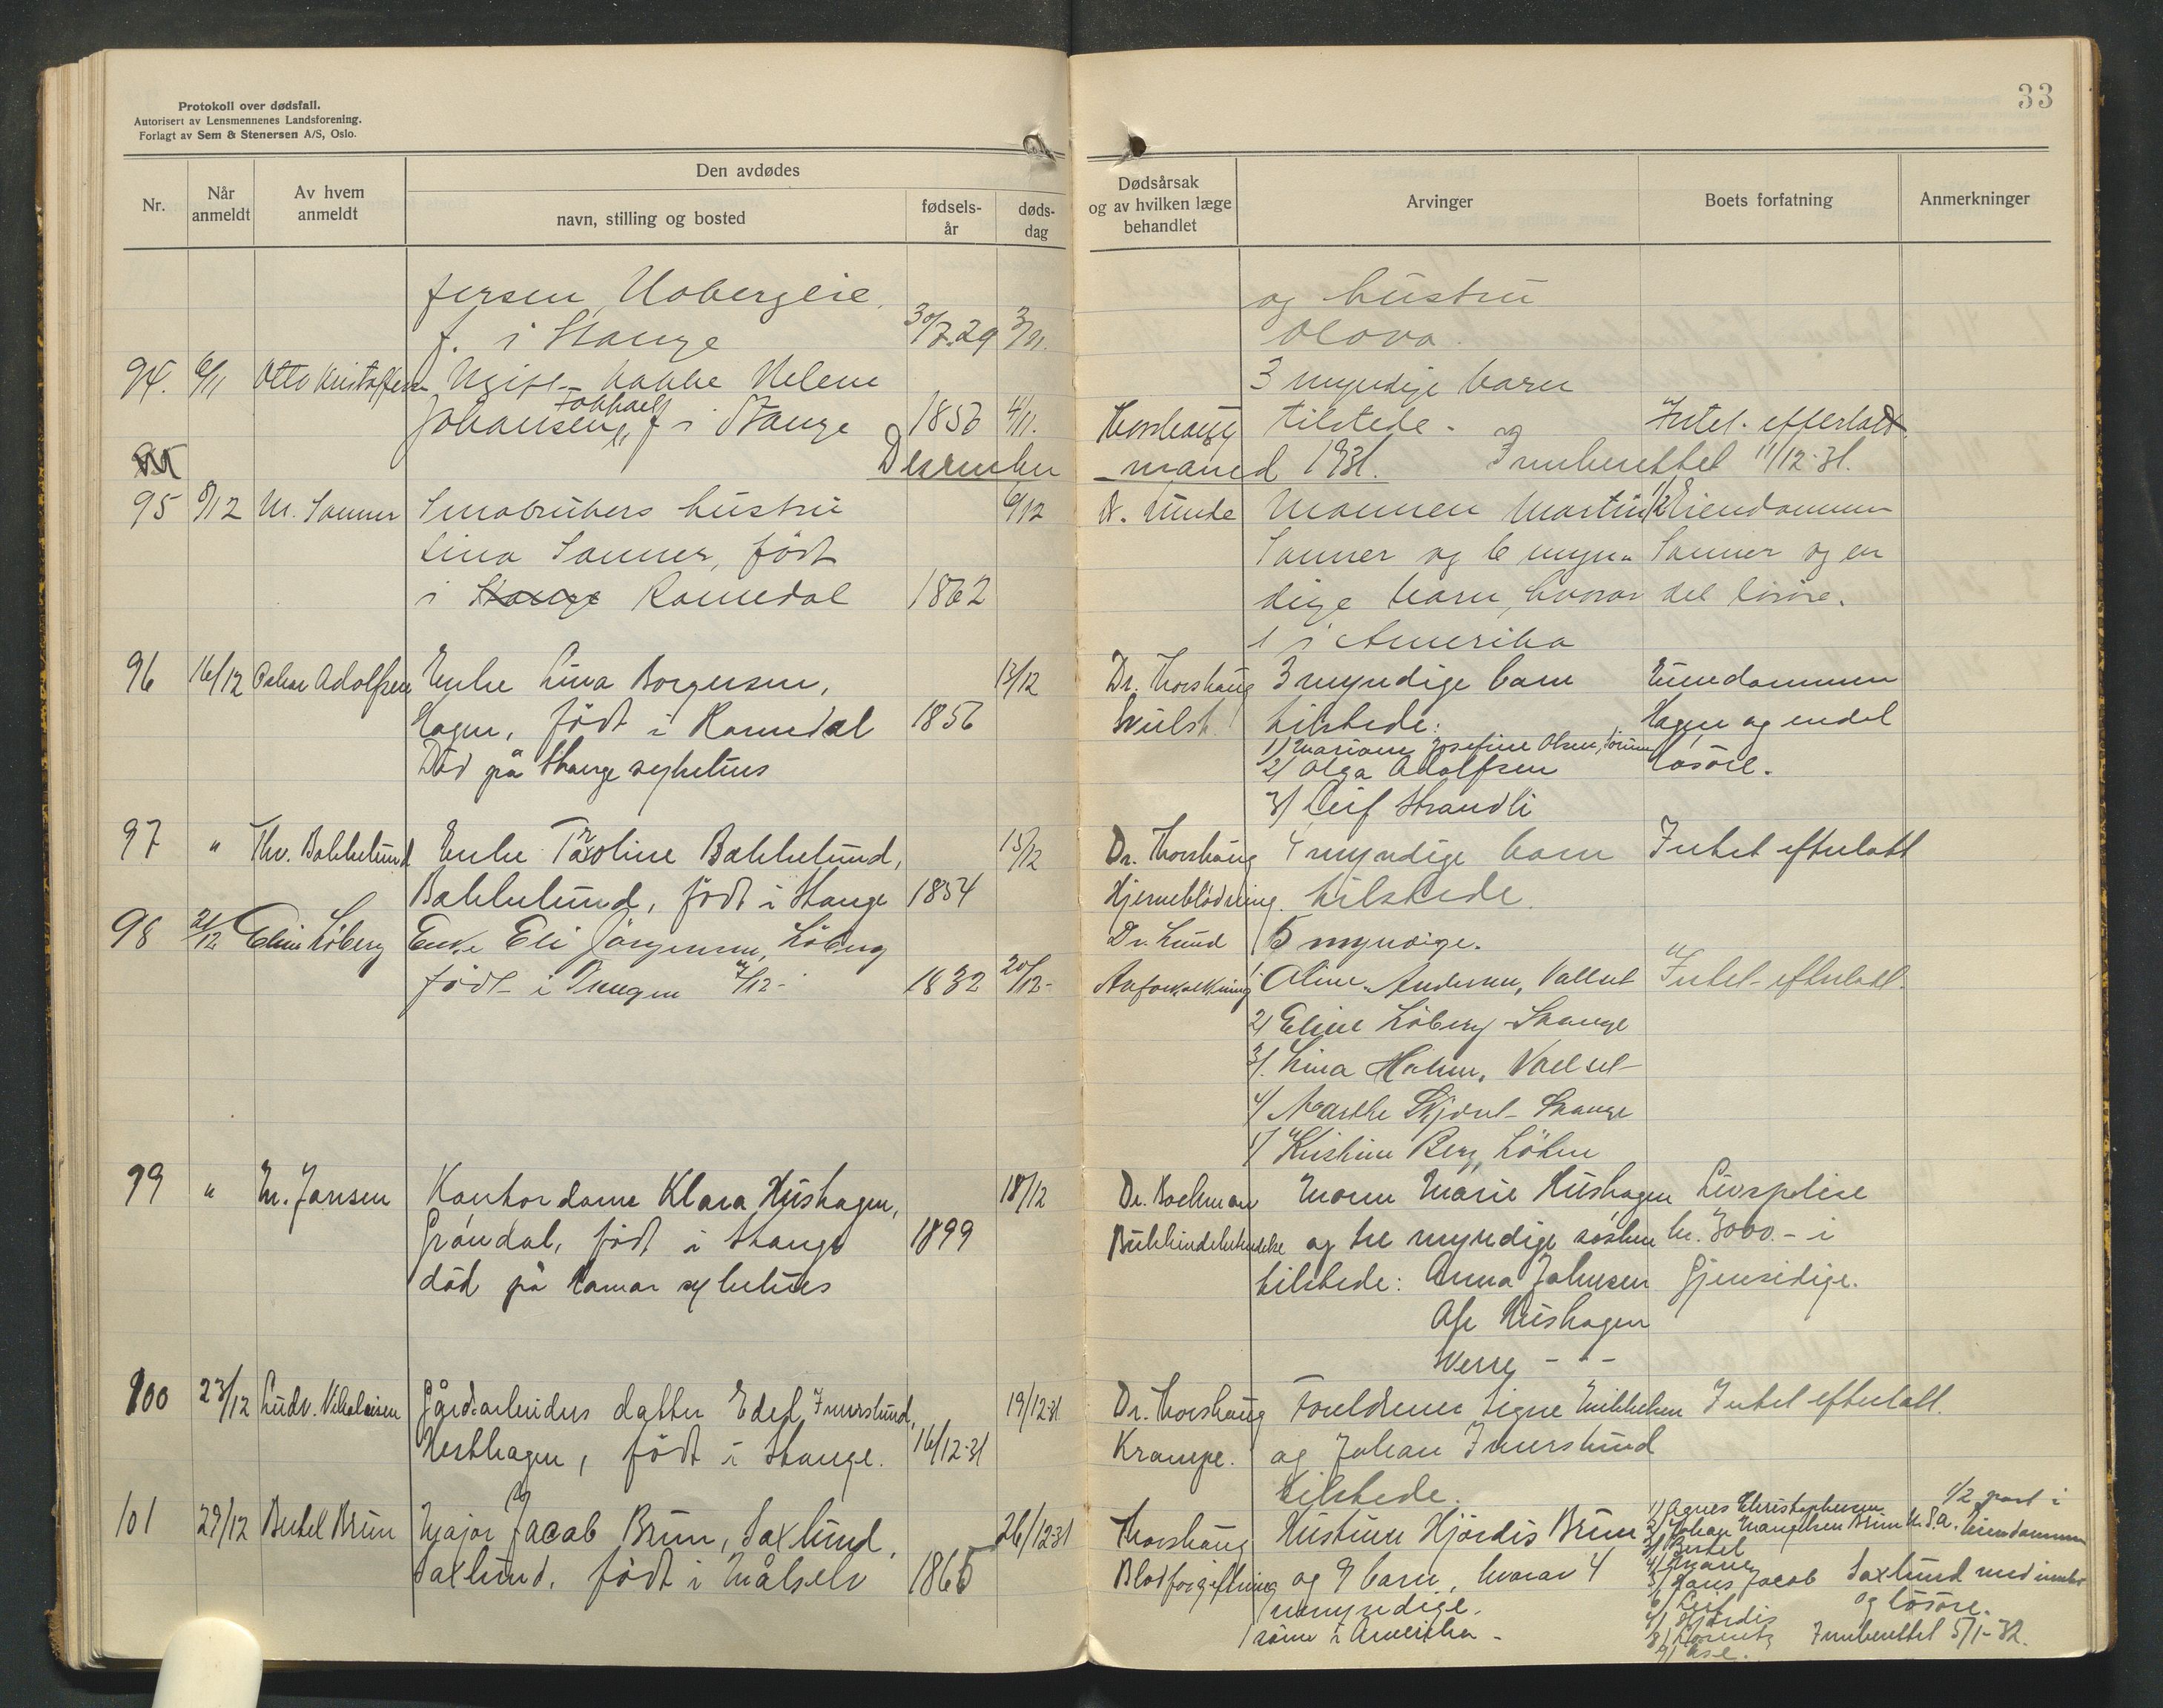 33
Protokoll over dødsfall.
Autorisert av Lensmennenes Landsforening.
Forlagt av Sem & Stenersen A/S, Oslo.
Nr.
Når anmeldt
Av hvem anmeldt
Den avdødes
navn, stilling og bosted
fødselsår
dødsdag
Dødsårsak og av hvilken læge behandlet
Arvinger
Boets forfatning
Anmerkninger
fersen,
f. i Stange 30/7.29 3/11.
og hustru
Olova.
94. 6/11 Otto Kristoffersen Helene
Johansen, f i Stange 1856 4/11.
3 myndige barn
Thorshaug tilstede. Intet efterlatt
Desember måned 1931. Innberettet 11/12-31.
95 8/12 M. Sanner Småbrukers hustru 6/12
Lina Sanner, født
i Stange Romedal 1862
Dr. Lunde Mannen Martin 1/2 Eiendommen
Sanner og 6 myn- Sanner og en
dige barn, hvorav del løsøre.
1 i Amerika
96 16/12 Oskar Adolfsen Enke Lina Borgersen, 13/12
Hagen, født i Romedal 1856
Død på Stange sykehus
Dr. Thorshaug 3 myndige barn Eiendommen
tilstede: Hagen og endel
1) Mariane Josefine Olsen, løsøre.
2) Olga Adolfsen
3) Leif Strandli
97 " Thv. Bakkelund Enke Karoline Bakkelund, 15/12
Bakkelund, født i Stange 1854
Dr. Thorshaug 4 myndige barn Intet efterlatt
Hjerneblødning. tilstede.
98 21/12 Eline Løberg Enke Eli Jørgensen, Løberg
født i 4/12- 1832 20/12-
Dr. Lund 5 myndige.
Åreforkalkning 1. Oline Andersen, Vallset Intet efterlatt.
2) Eline Løberg Stange
3/. Lina Holmen, Vallset
4/ Marthe Stange
5/ Kristine Berg, Løten
99 " M. Jansen Kontordame Klara Hushagen, 18/12
Grøndal, født i Stange 1899
død på Hamar sykehus
Dr. Bachman Moren Marie Hushagen Livspolise
Bukhinnebetendelse og tre myndige søsken kr. 3000.- i
tilstede: Anna Johnsen Gjensidige.
Hushagen
Sverre - " -
100 23/12 Ludv. Nikolaisen Gårdsarbeiders datter Edel Imerslund, 19/12 31
Hesthagen, født i Stange. 16/12-31
Dr. Thorshaug Foreldrene Signe Mikkelsen Intet efterlatt.
Krampe. og Johan Imerslund
tilstede.
101 29/12 Bertel Brun Major Jacob Brun, Saxlund, 26/12 31
Saxlund, født i Målselv 1865
Thorshaug Hustruen Hjørdis Brun
Blodforgiftning og 9 barn, hvorav 4
umyndige.
1 sønn i Amerika -
1) Agnes Christophersen
2) Johan Brun U.S.A.
3) Bertel
4) Marie
5) Hans Jacob
6) Leif
7) Hjørdis
8) Lorentz
9) Åse.
1/2 part i eiendommen
Saxlund med innbo
og løsøre.
Innberettet 5/1-32.